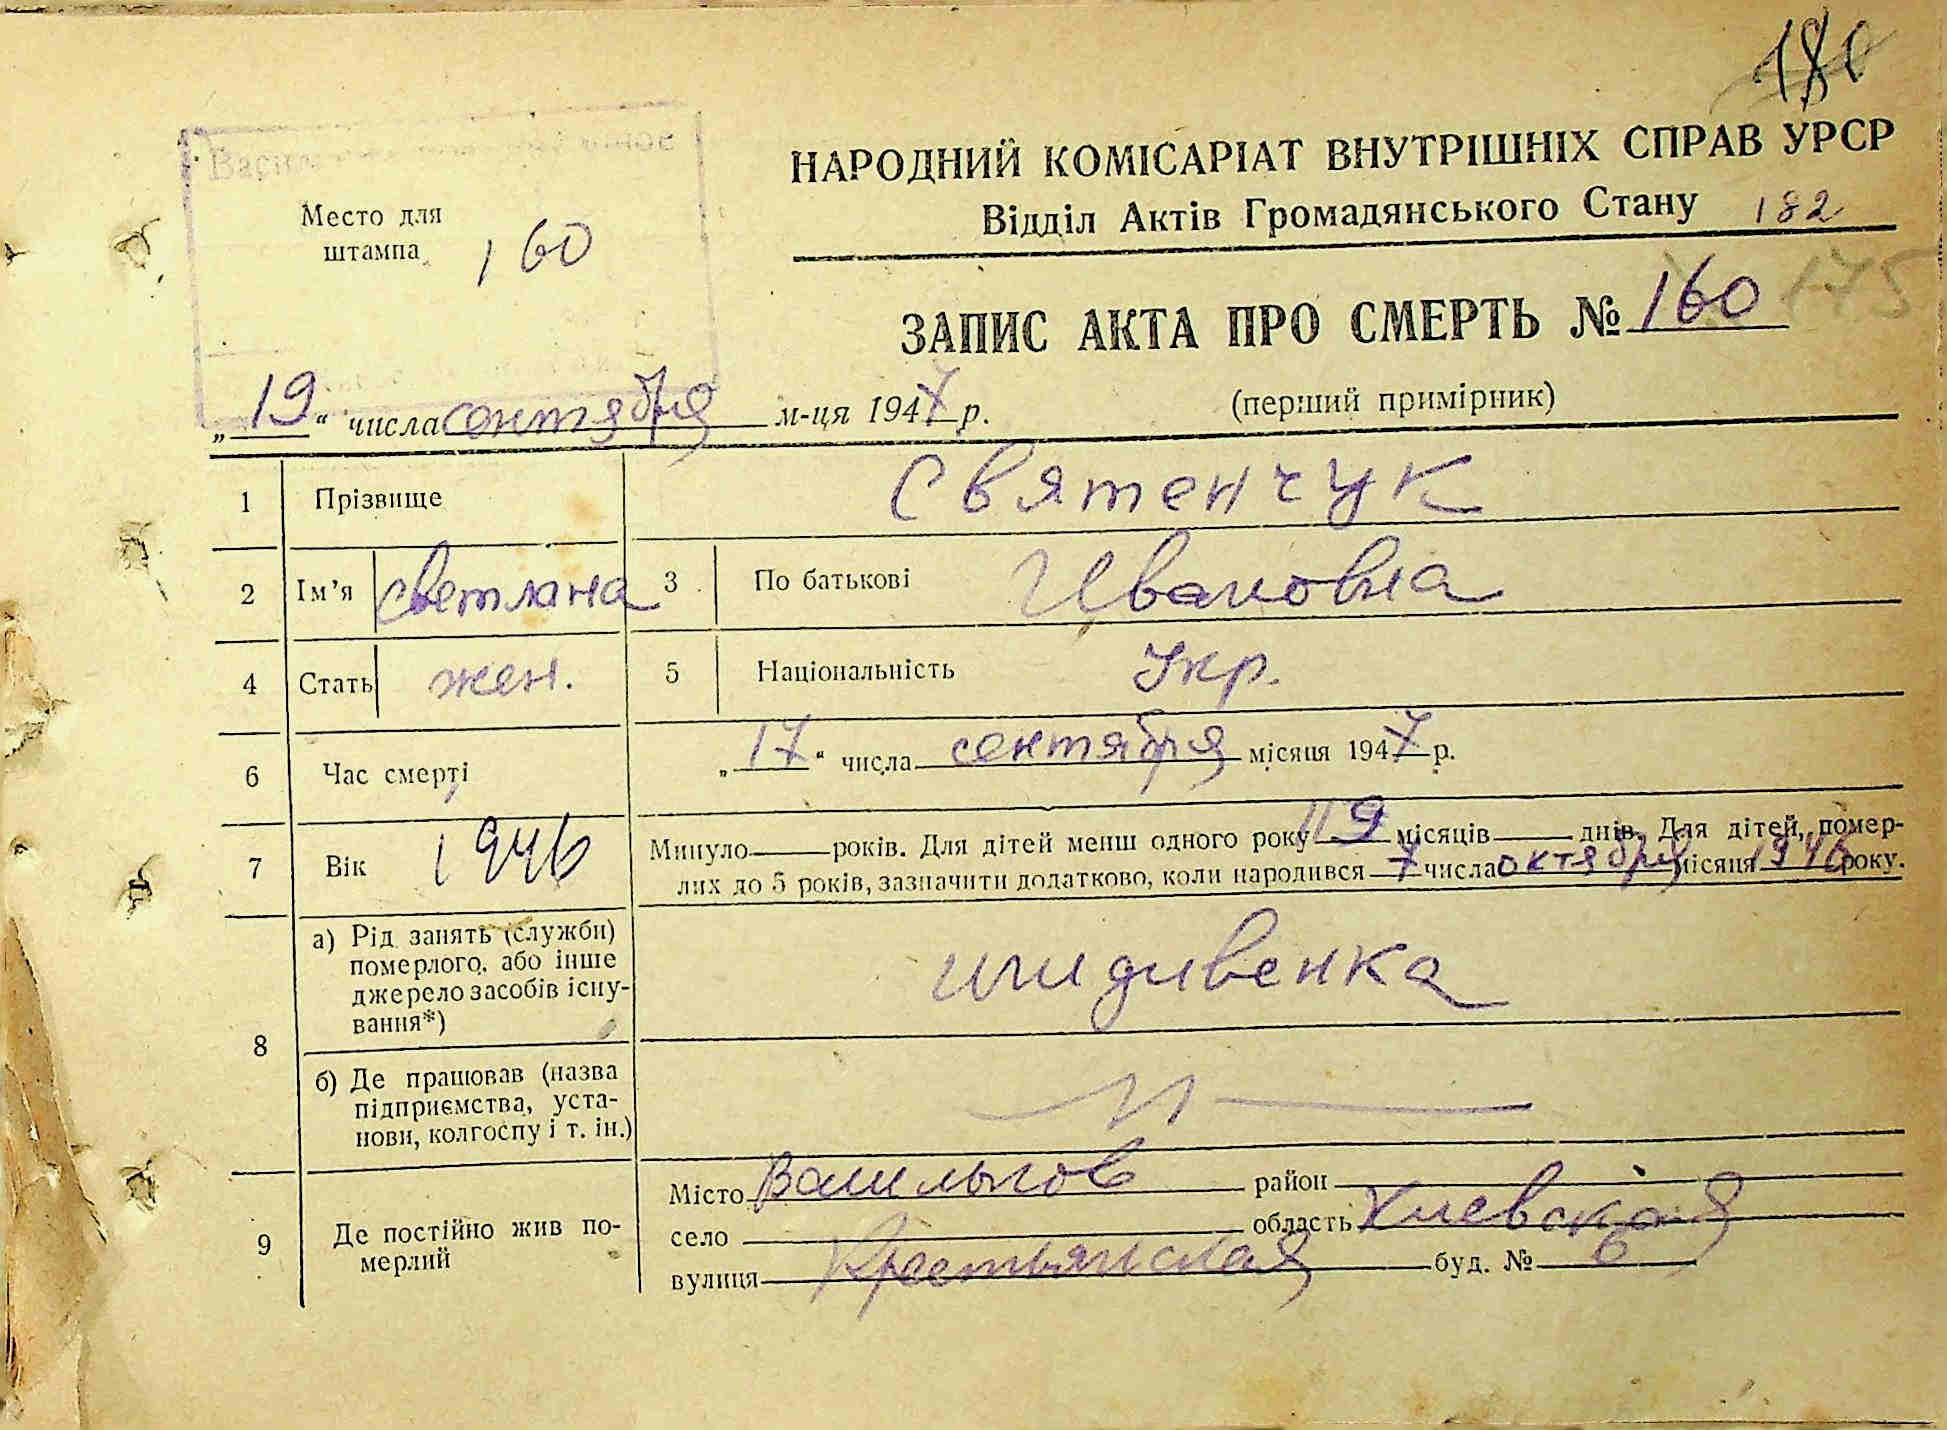 181
Васил
Место для
штампа
160
НАРОДНИЙ КОМІСАРІАТ ВНУТРІШНІХ СПРАВ УРСР
Відділ Актів Громадянського Стану 182
ЗАПИС АКТА ПРО СМЕРТЬ № 160 175
„19“ числа сентября м-ця 1947 р. (перший примірник)
1 Прізвище Святенчук
2 Ім'я Светлана 3 По батькові Ивановна
4 Стать жен. 5 Національність Укр.
6 Час смерті „17“ числа сентября місяця 1947 р.
7 Вік 1946 Минуло років. Для дітей менш одного року 11 місяців днів. Для дітей, помер-
лих до 5 років, зазначити додатково, коли народився 7 числа октября місяця 1946 року.
8 а) Рід занять (служби)
померлого, або інше
джерело засобів існу-
вання*)
иждивенка
б) Де працював (назва
підприємства, уста-
нови, колгоспу і т. ін.)
9 Де постійно жив по-
мерлий
Місто Васильков район
село область Киевская
вулиця Крестьянская буд. № 6